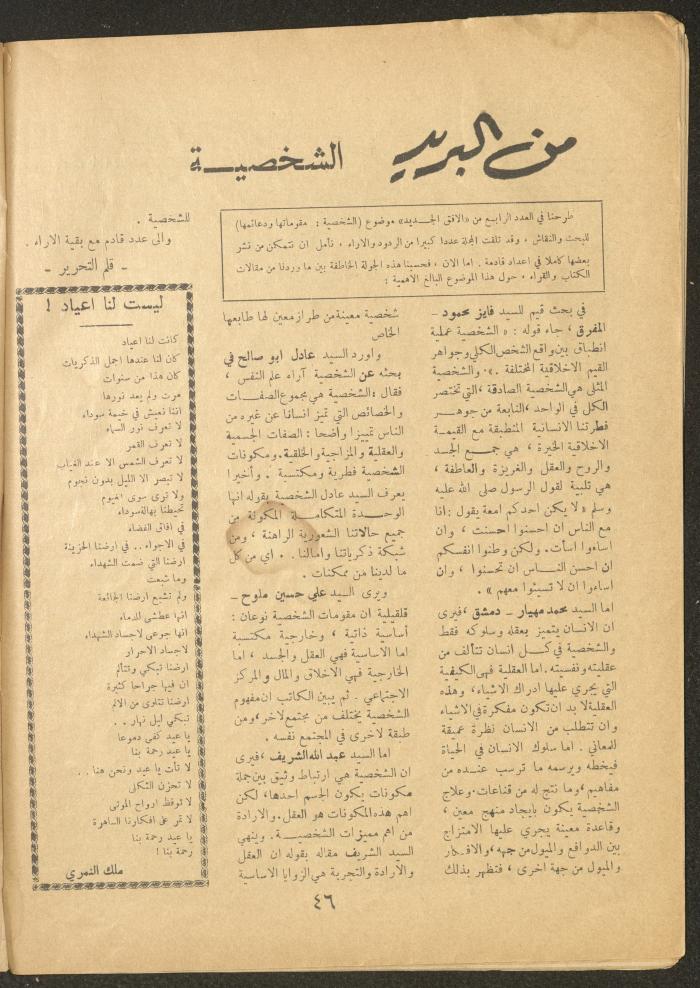 من البريد
الشخصيــة
طرحنا في العدد الرابع من «الافق الجديد» موضوع (الشخصية : مقوماتها ودعائمها)
للبحث والنقاش ، وقد تلقت المجلة عددا كبيرا من الردود والاراء ، نأمل ان نتمكن من نشر
بعضها كاملا في اعداد قادمة . اما الان ، فحسبنا هذه الجولة الخاطفة بين ما وردنا من مقالات
الكتاب والقراء ، حول هذا الموضوع البالغ الاهمية :
في بحث قيم للسيد فايز محمود -
المفرق ، جاء قوله : « الشخصية عملية
انطباق بين واقع الشخص الكلي وجواهر
القيم الاخلاقية المختلفة .» والشخصية
المثلى هي الشخصية الصادقة ، التي تختصر
الكل في الواحد ، النابعة من جوهــر
فطرتنا الانسانية المنطبقة مع القيمــة
الاخلاقية الخيرة ، هي جمــع الجسد
والروح والعقل والغريزة والعاطفة ،
هي تلبية لقول الرسول صلى الله عليه
وسلم « لا يكن احدكم امعة يقول : انا
مع الناس ان احسنوا احسنت ، وان
اساءوا اسأت . ولكن وطنوا انفسكم
ان احسن النــاس ان تحسنوا ، وان
اساءوا ان لا تسيئوا معهم » .
اما السيد محمد مهيار - دمشق ، فيرى
ان الانسان يتميز بعقله وسلوكه فقط
والشخصية في كــل انسان تتألف من
عقليته ونفسيته . اما العقلية فهي الكيفية
التي يجري عليها ادراك الاشياء ، وهذه
العقلية لا بد ان تكون مفكرة في الاشياء
وان تتطلب من الانسان نظرة عميقة
للمعاني . اما سلوك الانسان في الحياة
فيخطه ويرسمه ما ترسب عنــده من
مفاهيم ، وما نتج له من قناعات . وعلاج
الشخصية يكون بايجاد منهج معين ،
وقاعدة معينة يجري عليها الامتزاج
بين الدوافع والميول من جهة ، والافكار
والميول من جهة اخرى ، فتظهر بذلك
شخصية معينة من طراز معين لها طابعها
الخاص
واورد السيد عادل ابو صالح في
بحثه عن الشخصية آراء علم النفس ،
فقال : الشخصية هي مجموع الصفــات
والخصائص التي تميز انسانا عن غيره من
الناس تمييزا واضحا : الصفات الجسمية
والعقلية والمزاجية والخلقية . ومكونات
الشخصية فطرية ومكتسبة . وأخيرا
يعرف السيد عادل الشخصية بقوله انها
الوحــدة المتكاملــة المكونة من
جميع حالاتنا الشعورية الراهنة ، ومن
شبكة ذكرياتنا وامالنا . . اي من كل
ما لدينا من ممكنات .
ويرى السيد علي حسين ملوح -
قلقيلية ان مقومات الشخصية نوعان :
أساسية ذاتية ، وخارجية مكتسبة
اما الاساسية فهي العقل والجسد ، اما
الخارجية فهي الاخلاق والمال والمركز
الاجتماعي . ثم يبين الكاتب ان مفهوم
الشخصية يختلف من مجتمع لاخر ، ومن
طبقة لاخرى في المجتمع نفسه .
اما السيد عبد الله الشريف ، فيرى
ان الشخصية هي ارتباط وثيق بين جملة
مكونات يكون الجسم احدها ، لكن
اهم هذه المكونات هو العقل . والارادة
من اهم مميزات الشخصيــة . وينهي
السيد الشريف مقاله بقوله ان العقل
والارادة والتجربة هي الزوايا الاساسية
للشخصية .
والى عدد قادم مع بقية الاراء .
- قلم التحرير -
ليست لنا اعياد !
كانت لنا اعياد
كان لنا عندها اجمل الذكريات
كان هذا من سنوات
مرت ولم يعد نورها
اننا نعيش في خيمة سوداء
لا تعرف نور السماء
لا تعرف القمر
لا تعرف الشمس الا عند الغياب
لا تبصر الا الليل بدون نجوم
ولا ترى سوى الغيوم
تحيطنا بهالة سوداء
في افاق الفضاء
في الاجواء . . في ارضنا الحزينة
ارضنا التي ضمت الشهداء
وما شبعت
ولم تشبع ارضنا الجائعة
انها عطشى للدماء
انها جوعى لاجساد الشهداء
لاجساد الاحرار
ارضنا تبكي وتتألم
ان فيها جراحا كثيرة
ارضنا تتلوى من الالم
تبكي ليل نهار . .
يا عيد كفى دموعا
يا عيد رحمة بنا
لا تأت يا عيد ونحن هنا . .
لا تحزن الثكلى
لا توقظ ارواح الموتى
لا تمر على افكارنا الساهرة
يا عيد رحمة بنا
رحمة بنا !
ملك النمري
٤٦